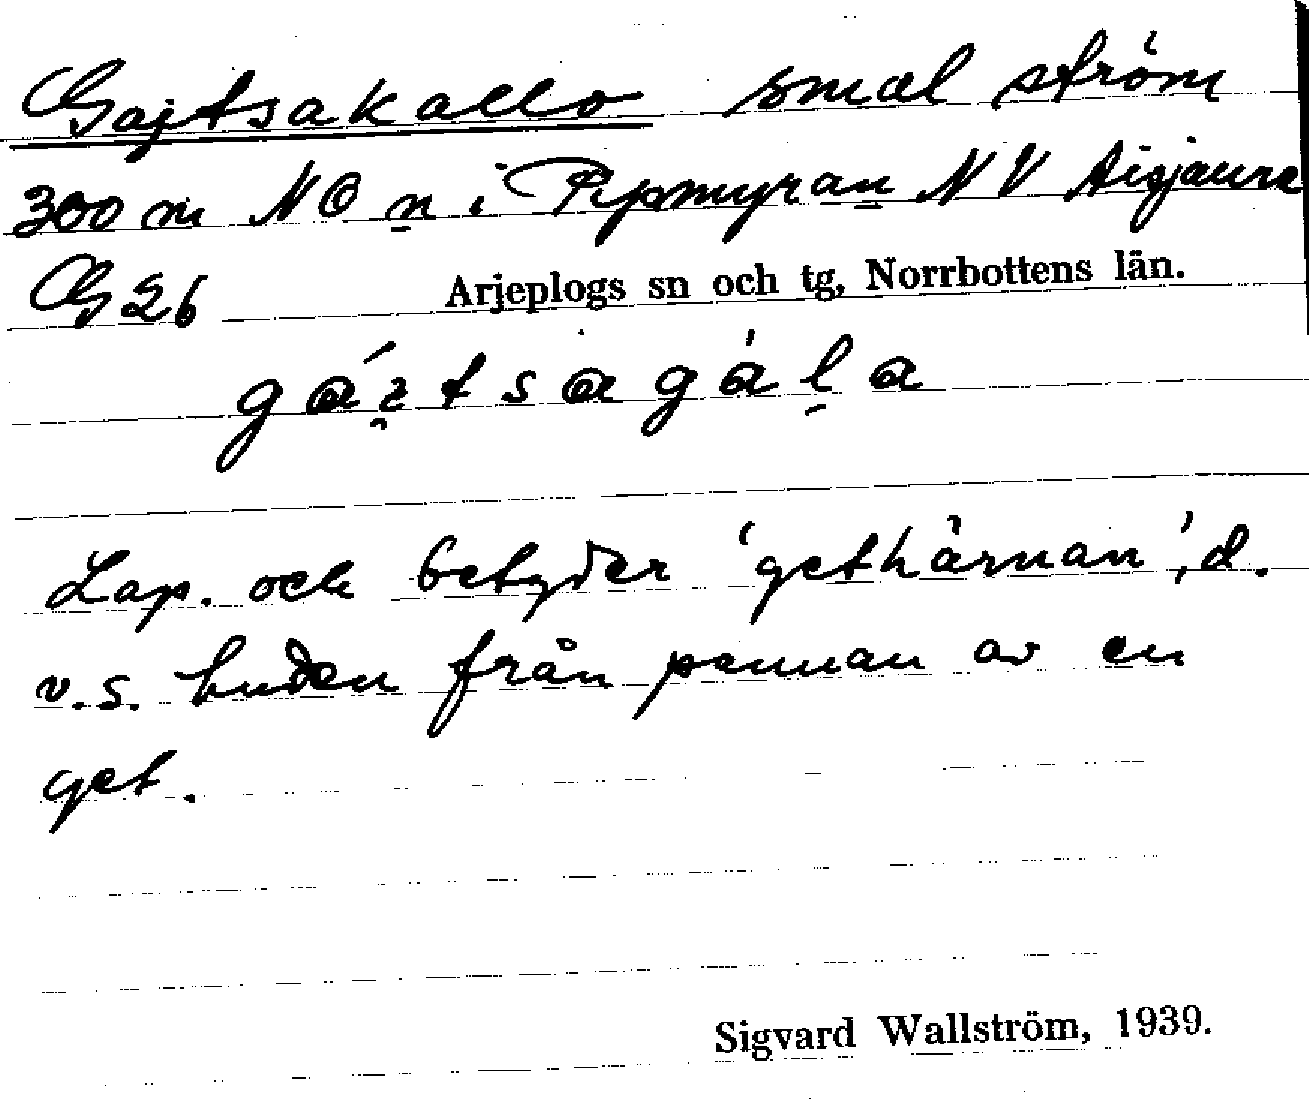 Gajtsakallo smal ström
300 m NO n i Pipmyran NV Aisjaure
G 26 Arjeplogs sn och tg, Norrbottens län.
gɑ́i̯tsɑgɑ̀l̬ɑ
Lap. och betyder 'gethärnan', d.
v.s. huden från pannan av en
get.
Sigvard Wallström, 1939.